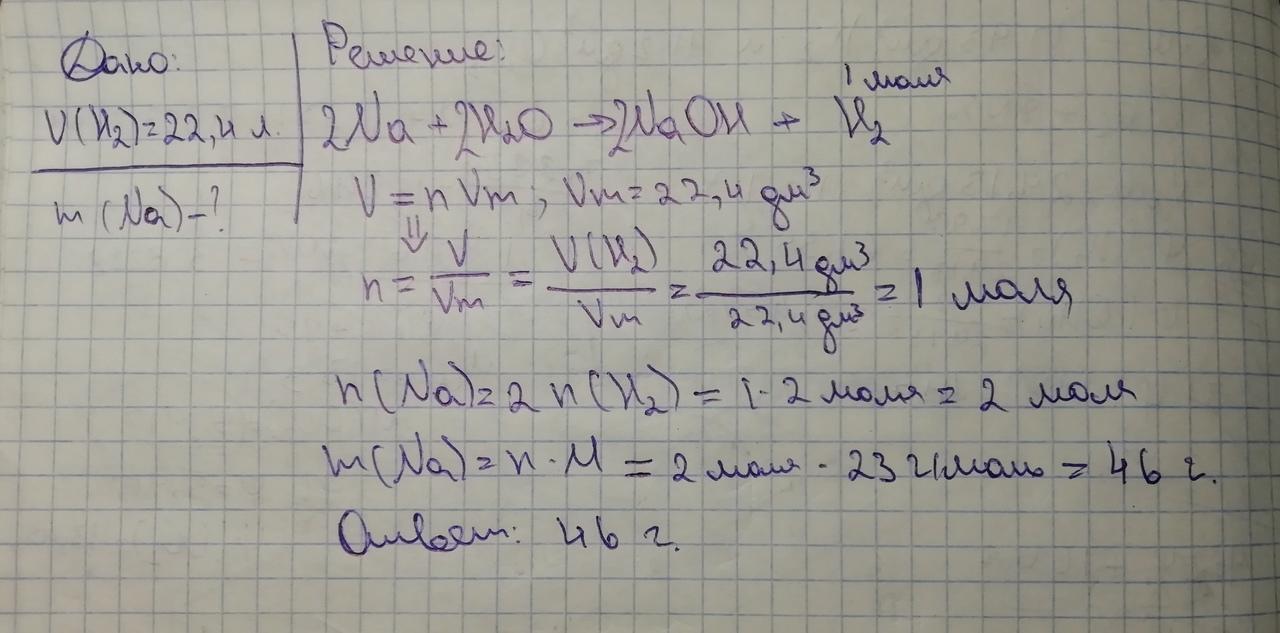 Дано:
V(H₂)=22,4 л.
m(Na)-?
Решение:
1 моля
2Na + 2H₂O → 2NaOH + H₂
V = n Vm ; Vm = 22,4 дм³
⇓
n = V/Vm = V(H₂)/Vm = 22,4 дм³/22,4 дм³ = 1 моля
n(Na) = 2 n(H₂) = 1·2 моля = 2 моля
m(Na) = n·M = 2 моля · 23 г/моль = 46 г.
Ответ: 46 г.